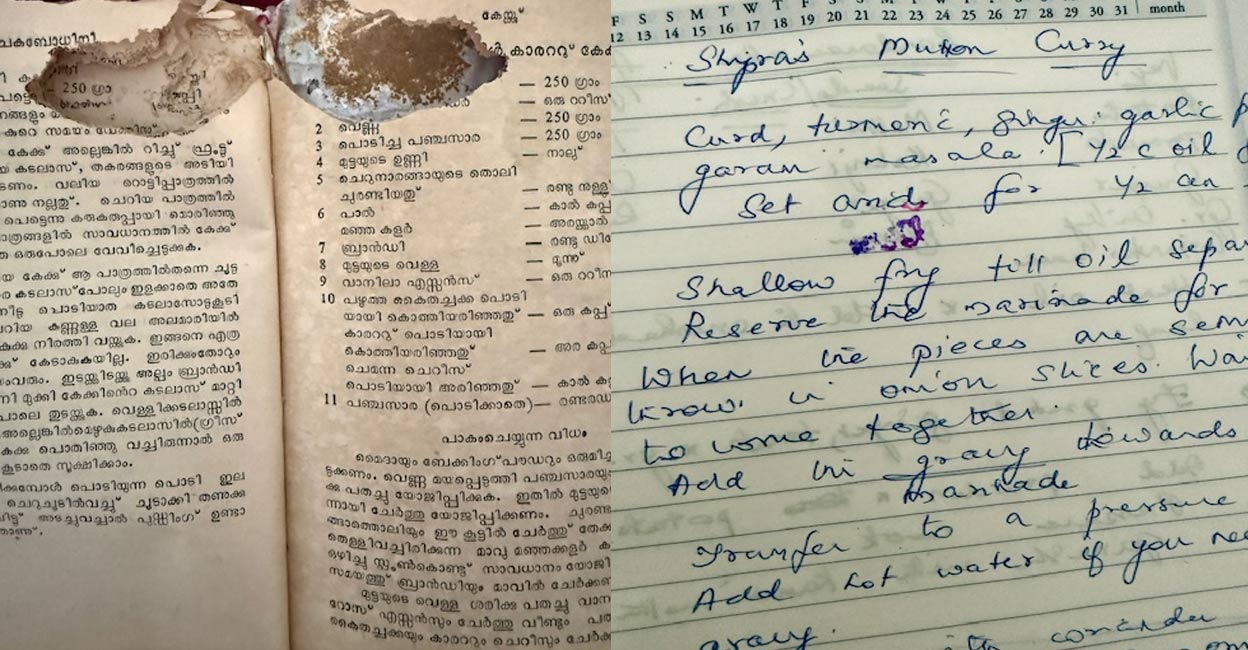 ചകബോധിനി
— 250 ഗ്രാ
കുറെ സമയം
കേക്ക് അല്ലെങ്കിൽ റിച്ച് ഫ്രൂട്ട്
യ കടലാസ്, തകരങ്ങളുടെ അടിയി
ടണം. വലിയ റൊട്ടിപ്പാത്രത്തിൽ
ാണു നല്ലത്. ചെറിയ പാത്രത്തിൽ
പെട്ടെന്നു കരുകരുപ്പായി മൊരിഞ്ഞു
ാത്രങ്ങളിൽ സാവധാനത്തിൽ കേക്ക്
ത ഒരുപോലെ വേവിച്ചെടുക്കുക.
യ കേക്ക് ആ പാത്രത്തിൽതന്നെ ചൂട്ട
ര കടലാസ്പോലും ഇളക്കാതെ അതേ
നിട്ട പൊടിയാത കടലാസോടുകൂടി
റിയ കണ്ണുള്ള വല അലമാരിയിൽ
കുക്കു നിരത്തി വയ്ക്കുക. ഇങ്ങനെ എത്ര
ക്ക് കേടാകുകയില്ല. ഇരിക്കുംതോറും
ംവരും. ഇടയ്ക്കിടയ്ക്കു അല്പം ബ്രാൻഡി
നി മുക്കി കേക്കിൻെറ കടലാസ് മാറ്റി
പാലെ തുടയ്ക്കുക. വെള്ളിക്കടലാസ്സിൽ
അല്ലെങ്കിൽമെഴുകുകടലാസിൽ(ഗ്രീസ്
കക്കു പൊതിഞ്ഞു വച്ചിരുന്നാൽ ഒരു
കൂടാതെ സൂക്ഷിക്കാം.
ിക്കുമ്പോൾ പൊടിയുന്ന പൊടി ഇല
ചെറുചൂടിൽവച്ച് ചൂടാക്കി തണുക്ക
അടച്ചുവച്ചാൽ പുഡ്ഡിംഗ് ഉണ്ടാ
കേയ്ക്ക്
കാരററു് കേക്
— 250 ഗ്രാം
— ഒരു ററീസ്
2 വെണ്ണ — 250 ഗ്രാം
3 പൊടിച്ച പഞ്ചസാര — 250 ഗ്രാം
4 മുട്ടയുടെ ഉണ്ണി — നാലു്
5 ചെറുനാരങ്ങായുടെ തൊലി
ചുരണ്ടിയതു് — രണ്ടു നുള്ളു
6 പാൽ — കാൽ കപ്പ
മഞ്ഞ കളർ — അരയ്ക്കാൽ
7 ബ്രാൻഡി — രണ്ടു ഡി
8 മുട്ടയുടെ വെള്ള — മൂന്നു്
9 വാനിലാ എസ്സൻസ് — ഒരു ററീസ
10 പഴുത്ത കൈതച്ചക്ക പൊടി
യായി കൊത്തിയരിഞ്ഞതു് — ഒരു കപ്പ്
കാരററു് പൊടിയായി
കൊത്തിയരിഞ്ഞതു് — അര കപ്പ
ചെമന്ന ചെറീസ്
പൊടിയായി അരിഞ്ഞതു് — കാൽ ക
11 പഞ്ചസാര (പൊടിക്കാതെ)— രണ്ടര
പാകംചെയ്യുന്ന വിധം
മൈദായും ബേക്കിംഗ്പൗഡറും ഒരുമി
ട്ടക്കണം. വെണ്ണ മയപ്പെടുത്തി പഞ്ചസാരയു
ക്കു പതച്ചു യോജിപ്പിക്കുക. ഇതിൽ മുട്ടയുടെ
ന്നായി ചേർത്തു യോജിപ്പിക്കണം. ചുരണ്ട
ങ്ങാത്തൊലിയും ഈ കൂട്ടിൽ ചേർത്ത് തേക്ക
തെള്ളിവച്ചിരിക്കുന്ന മാവു മഞ്ഞക്കളർ ക
ഒഴിച്ചു സ്പൂൺകൊണ്ട് സാവധാനം യോജി
സമയത്തു് ബ്രാൻഡിയും മാവിൽ ചേർക്കണ
മുട്ടയുടെ വെള്ള ശരിക്കു പതച്ചു വാന
റോസ് എസ്സൻസും ചേർത്തു വീണ്ടും പത
കൈതച്ചക്കയും കാരററും ചെറീസും ചേർക്ക
F S S M T W T F S S M T W T F S S M T
12 13 14 15 16 17 18 19 20 21 22 23 24 25 26 27 28 29 30 31 month
Shipra's Mutton Curry
Curd, turmeric, ginger garlic p
garam masala [1/2 c oil
Set aside for 1/2 an
Shallow fry till oil sepa
Reserve the marinade for
When the pieces are sem
throw in onion slices. Wai
to come together.
Add the gravy towards
marinade
Transfer to a pressure
Add hot water if you nee
gravy.
coriander